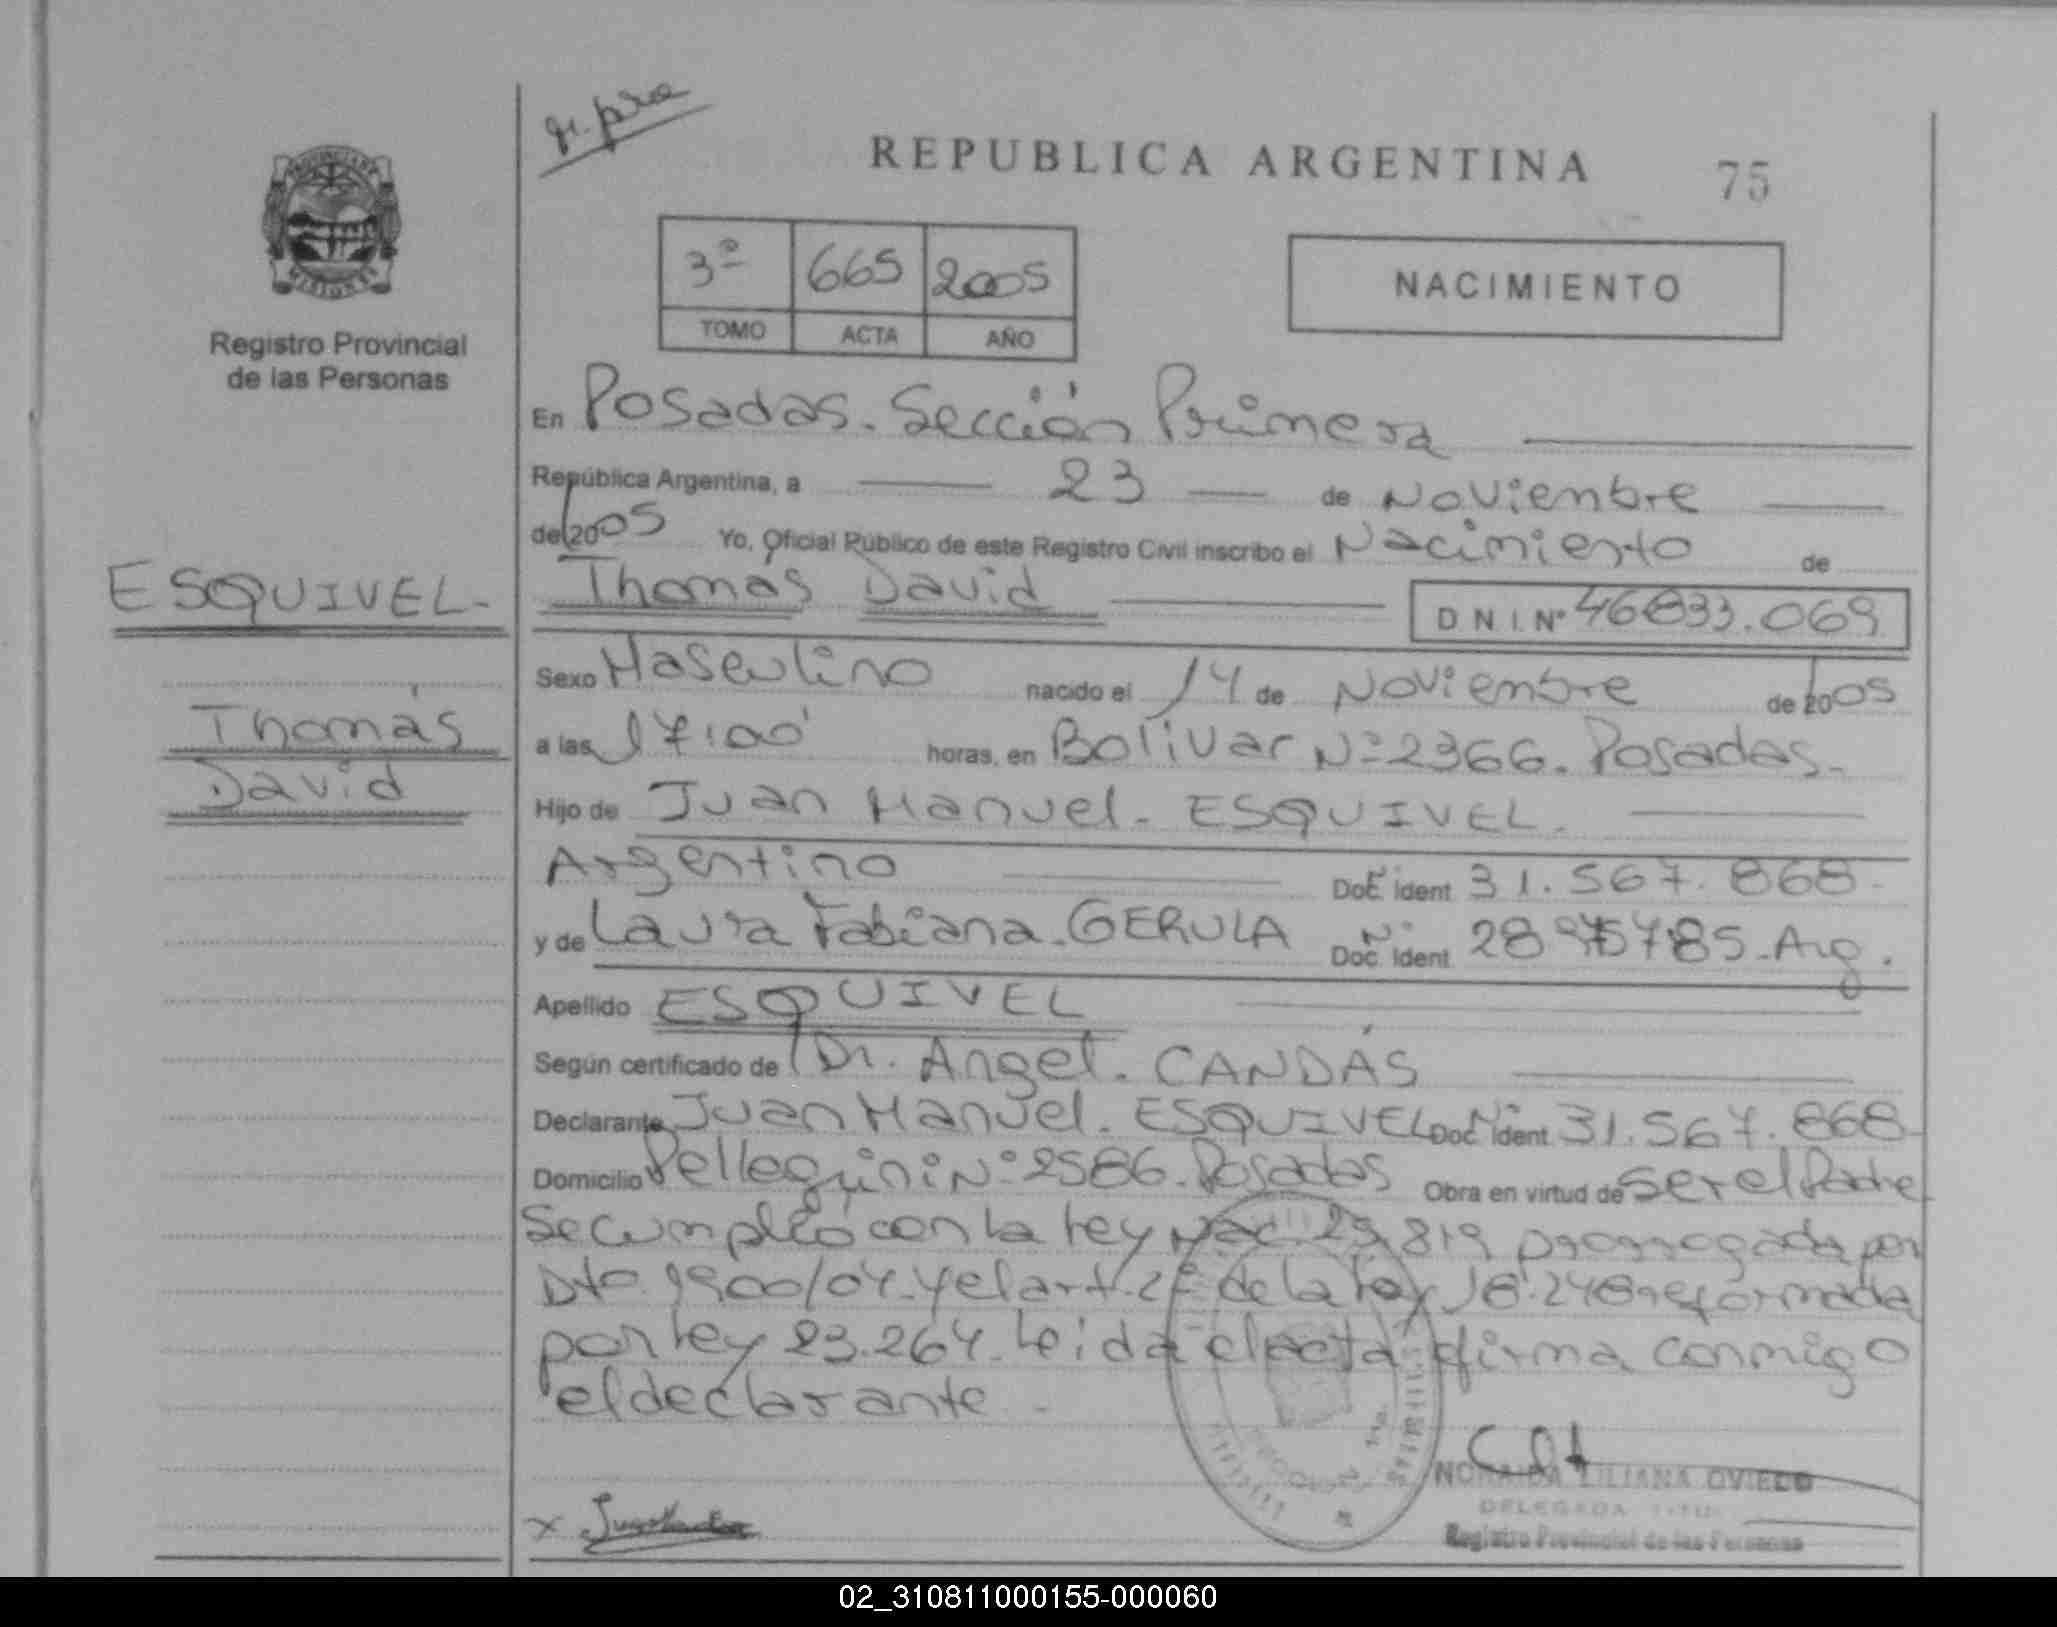 gr. pra
REPUBLICA ARGENTINA 75
PROVINCIA DE
MISIONES
Registro Provincial
de las Personas
3º 665 2005
TOMO ACTA AÑO
NACIMIENTO
En Posadas. Sección Primera
República Argentina, a 23 de Noviembre
de 2005 Yo, Oficial Público de este Registro Civil inscribo el Nacimiento de
ESQUIVEL-
Thomás David D N I. Nº 46833.069
Sexo Masculino nacido el 14 de Noviembre de 2005
Thomás
David
a las 17:00' horas, en Bolivar Nº 2366. Posadas.
Hijo de Juan Manuel. ESQUIVEL.
Argentino Doc. Ident. 31.567.868-
y de Laura Fabiana. GERULA Doc. Ident. 28 785-Arg.
Apellido ESQUIVEL
Según certificado de Dr. Angel. CANDÁS
Declarante Juan Manuel. ESQUIVEL Doc. Ident. 31.567.868-
Domicilio Pellegrini Nº 2586. Posadas Obra en virtud de ser el Padre
Se cumplió con la Ley Nac. 25.819 prorrogada por
Dto. 1900/04. y el art. 2º de la Ley 18.248 reformada
por Ley 23.264. Leida el acta firma conmigo
el declarante.
x
NORAIDA LILIANA OVIEDO
DELEGADA
Registro Provincial de las Personas
02_310811000155-000060